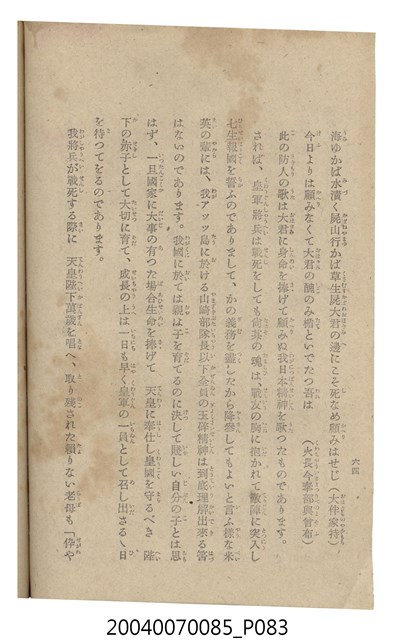 六四
海ゆかば水漬く屍山行かば草生屍大君の邊にこそ死なめ顧みはせじ(大伴家持)
今日よりは顧みなくて大君の醜のみ楯といでたつ吾は　(火長今奉部與曾布)
此の防人の歌は大君に身命を捧げて顧みぬ我日本精神を歌つたものであります。
されば、皇軍將兵は戰死をしても尙其の魂は、戰友の胸に抱かれて敵陣に突入し
七生報國を誓ふのでありまして、かの義務を盡したから降參してもよいと言ふ樣な米
英の輩には、我アッツ島に於ける山崎部隊長以下全員の玉碎精神は到底理解出來る筈
はないのであります。我國に於ては親は子を育てるのに決して賤しい自分の子とは思
はず、一旦國家に大事の有つた場合生命を捧げて　天皇に奉仕し皇國を守るべき　陛
下の赤子として大切に育て、成長の上は一日も早く皇軍の一員として召し出さるゝ日
を待つてをるのであります。
我將兵が戰死する際に　天皇陛下萬歲を唱へ、取り殘された賴りない老母も「伜や
20040070085_P083